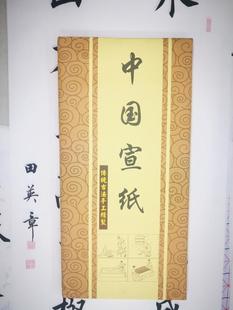 中国宣纸
传统古法手工精制
田英章